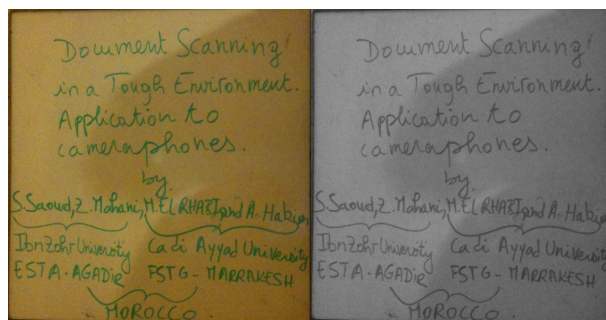 Document Scanning
in a Tough Environment.
Application to
cameraphones.
by.
S.Saoud, Z. Mahani, M.EL RHABI, and A. Hakim
Ibn Zohr University
Cadi Ayyad University
ESTA - AGADIR
FSTG - MARRAKESH
MOROCCO
Document Scanning
in a Tough Environment.
Application to
cameraphones.
by.
S.Saoud, Z. Mahani, M.EL RHABI, and A. Hakim
Ibn Zohr University
Cadi Ayyad University
ESTA - AGADIR
FSTG - MARRAKESH
MOROCCO